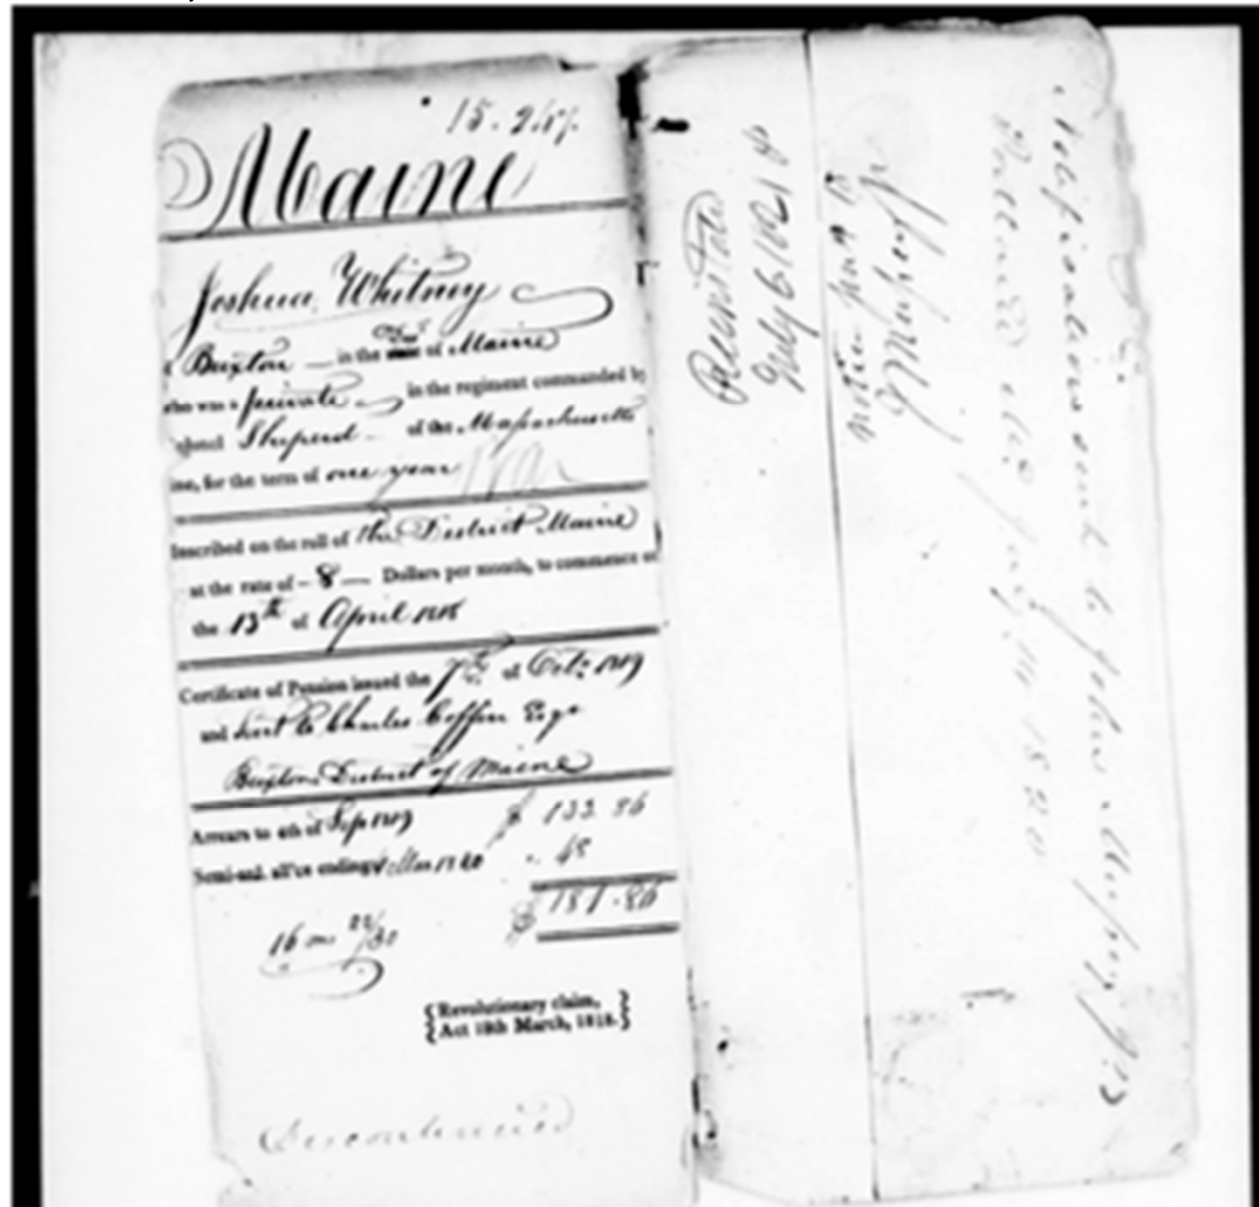 15.
Maine
Joshua Whitney
Buxton — in the of Maine
who was a private in the regiment commanded by
Colonel Sheperd — of the Massachusetts
line, for the term of one year
Inscribed on the roll of the District Maine
at the rate of - 8 — Dollars per month, to commence on
the 13th of April 1818
Certificate of Pension issued the 7th of Octr 1819
and sent to Charles Coffin Esqr
Buxton District of Maine
Arrears to 4th of Sep 1819 $ 133 86
Semi-anl. all'ce ending 4 Mar 1820 48
$ 181.86
16 ms 22/30
{Revolutionary claim,
Act 18th March, 1818.}
Discontinued
Reinstated
July 6. 1821
Notifications sent to John
July 14 1820